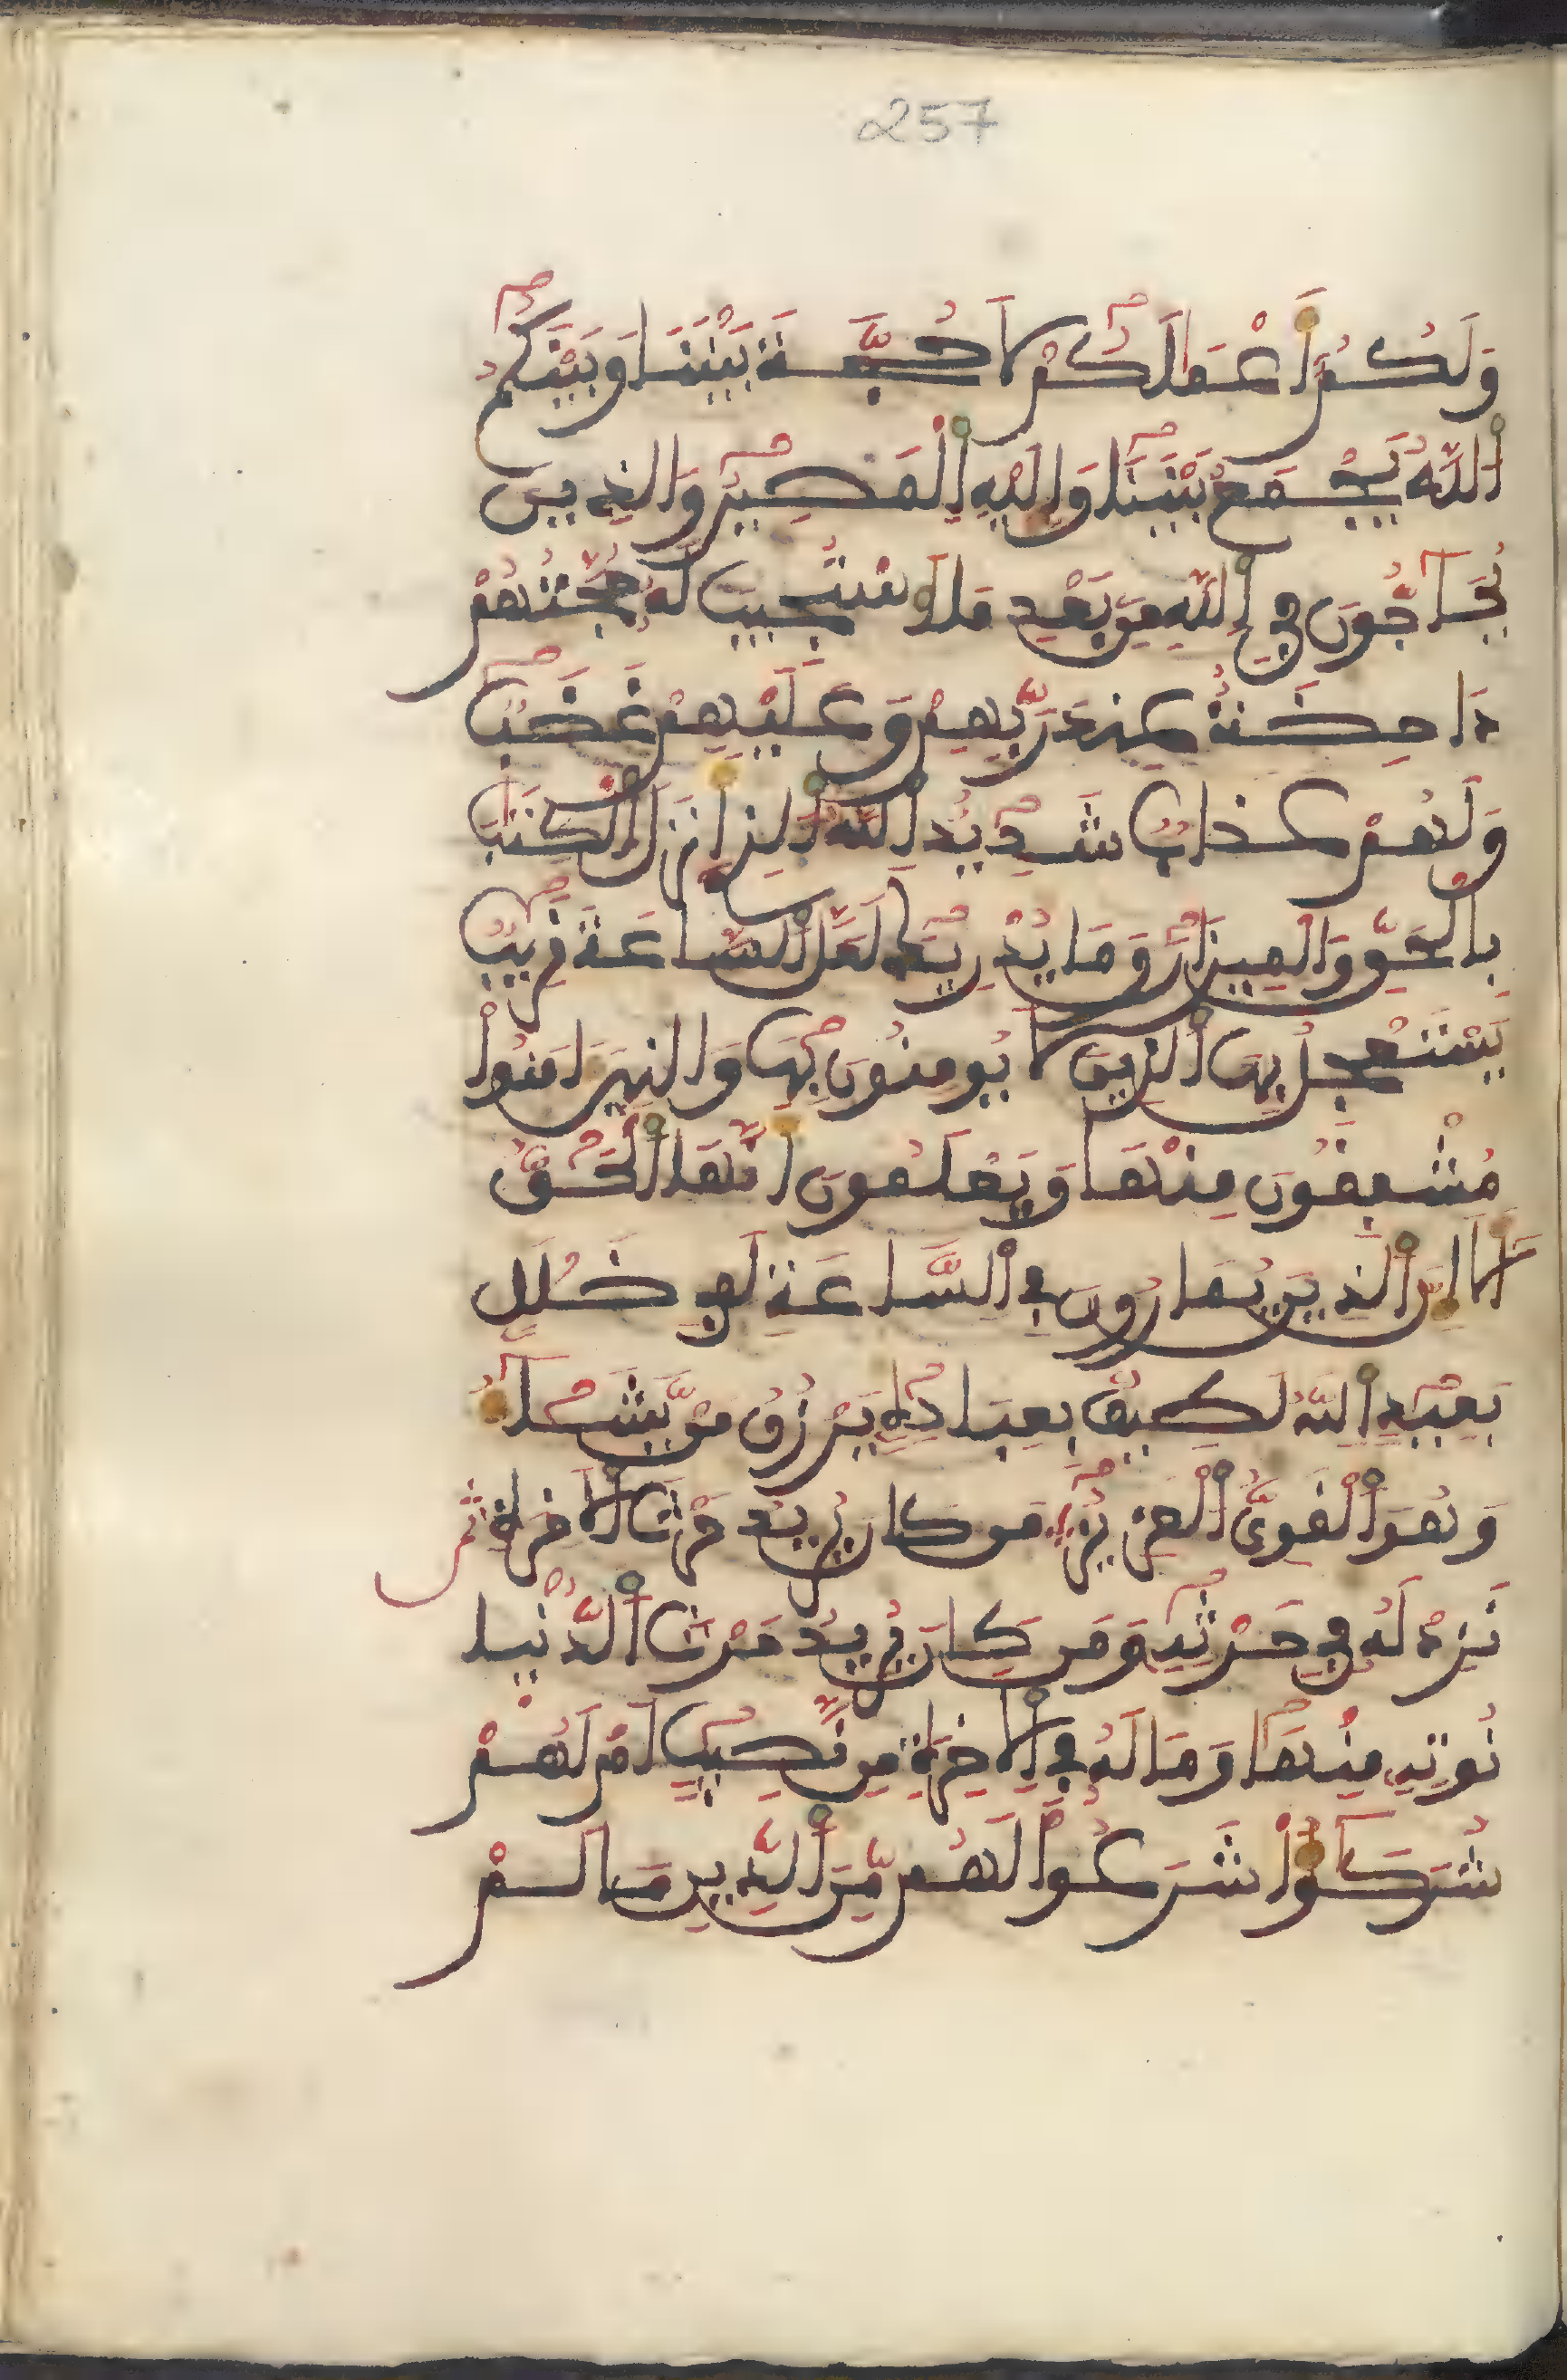 257
وَلَكُمُ أَعْمَلُكُمْ لَا حُجَّةَ بَيْنَنَا وَبَيْنَكُمُ
اُللَّهُ يَجْمَعُ بَيْنَنَا وَإِلَيْهِ اِلْمَصِيرُ وَالذِينَ
يُحَاجُّونَ فِي اِللَّهِ مِنْ بَعْدِ مَا اَسْتُجِيبَ لَهُ حُجَّتُهُمْ
دَاحِضَةٌ عِندَ رَبِّهِمْ وَعَلَيْهِمْ غَضَبٌ
وَلَهُمْ عَذَابٌ شَدِيدٌ اِللَّهُ اُلذِي أَنزَلَ اَلْكِتَبَ
بِالْحَقِّ وَالْمِيزَانَ وَمَا يُدْرِيكَ لَعَلَّ اَلسَّاعَةَ قَرِيبٌ
يَسْتَعْجِلُ بِهَا اَلذِينَ لَا يُومِنُونَ بِهَا وَالذِينَ ءَامَنُواْ
مُشْفِقُونَ مِنْهَا وَيَعْلَمُونَ أَنَّهَا اَلْحَقُّ
أَلَا إِنَّ اَلذِينَ يُمَارُونَ فِي اِلسَّاعَةِ لَفِي ضَلَلٍ
بَعِيدٍ اِللَّهُ لَطِيفٌ بِعِبَادِهِ يَرْزُقُ مَنْ يَّشَآءُ
وَهُوَ اَلْقَوِيُّ اُلْعَزِيزُ مَن كَانَ يُرِيدُ حَرْثَ اَلَاخِرَةِ ثمن
نَزِدْ لَهُ فِي حَرْثِهِ وَمَن كَانَ يُرِيدُ حَرْثَ اَلدُّنْيَا
نُوتِهِ مِنْهَا وَمَا لَهُ فِي اِلَاخِرَةِ مِن نَّصِيبٍ اَمْ لَهُمْ
شُرَكَٰٓؤُاْ شَرَعُواْ لَهُم مِّنَ اَلدِّينِ مَا لَمْ